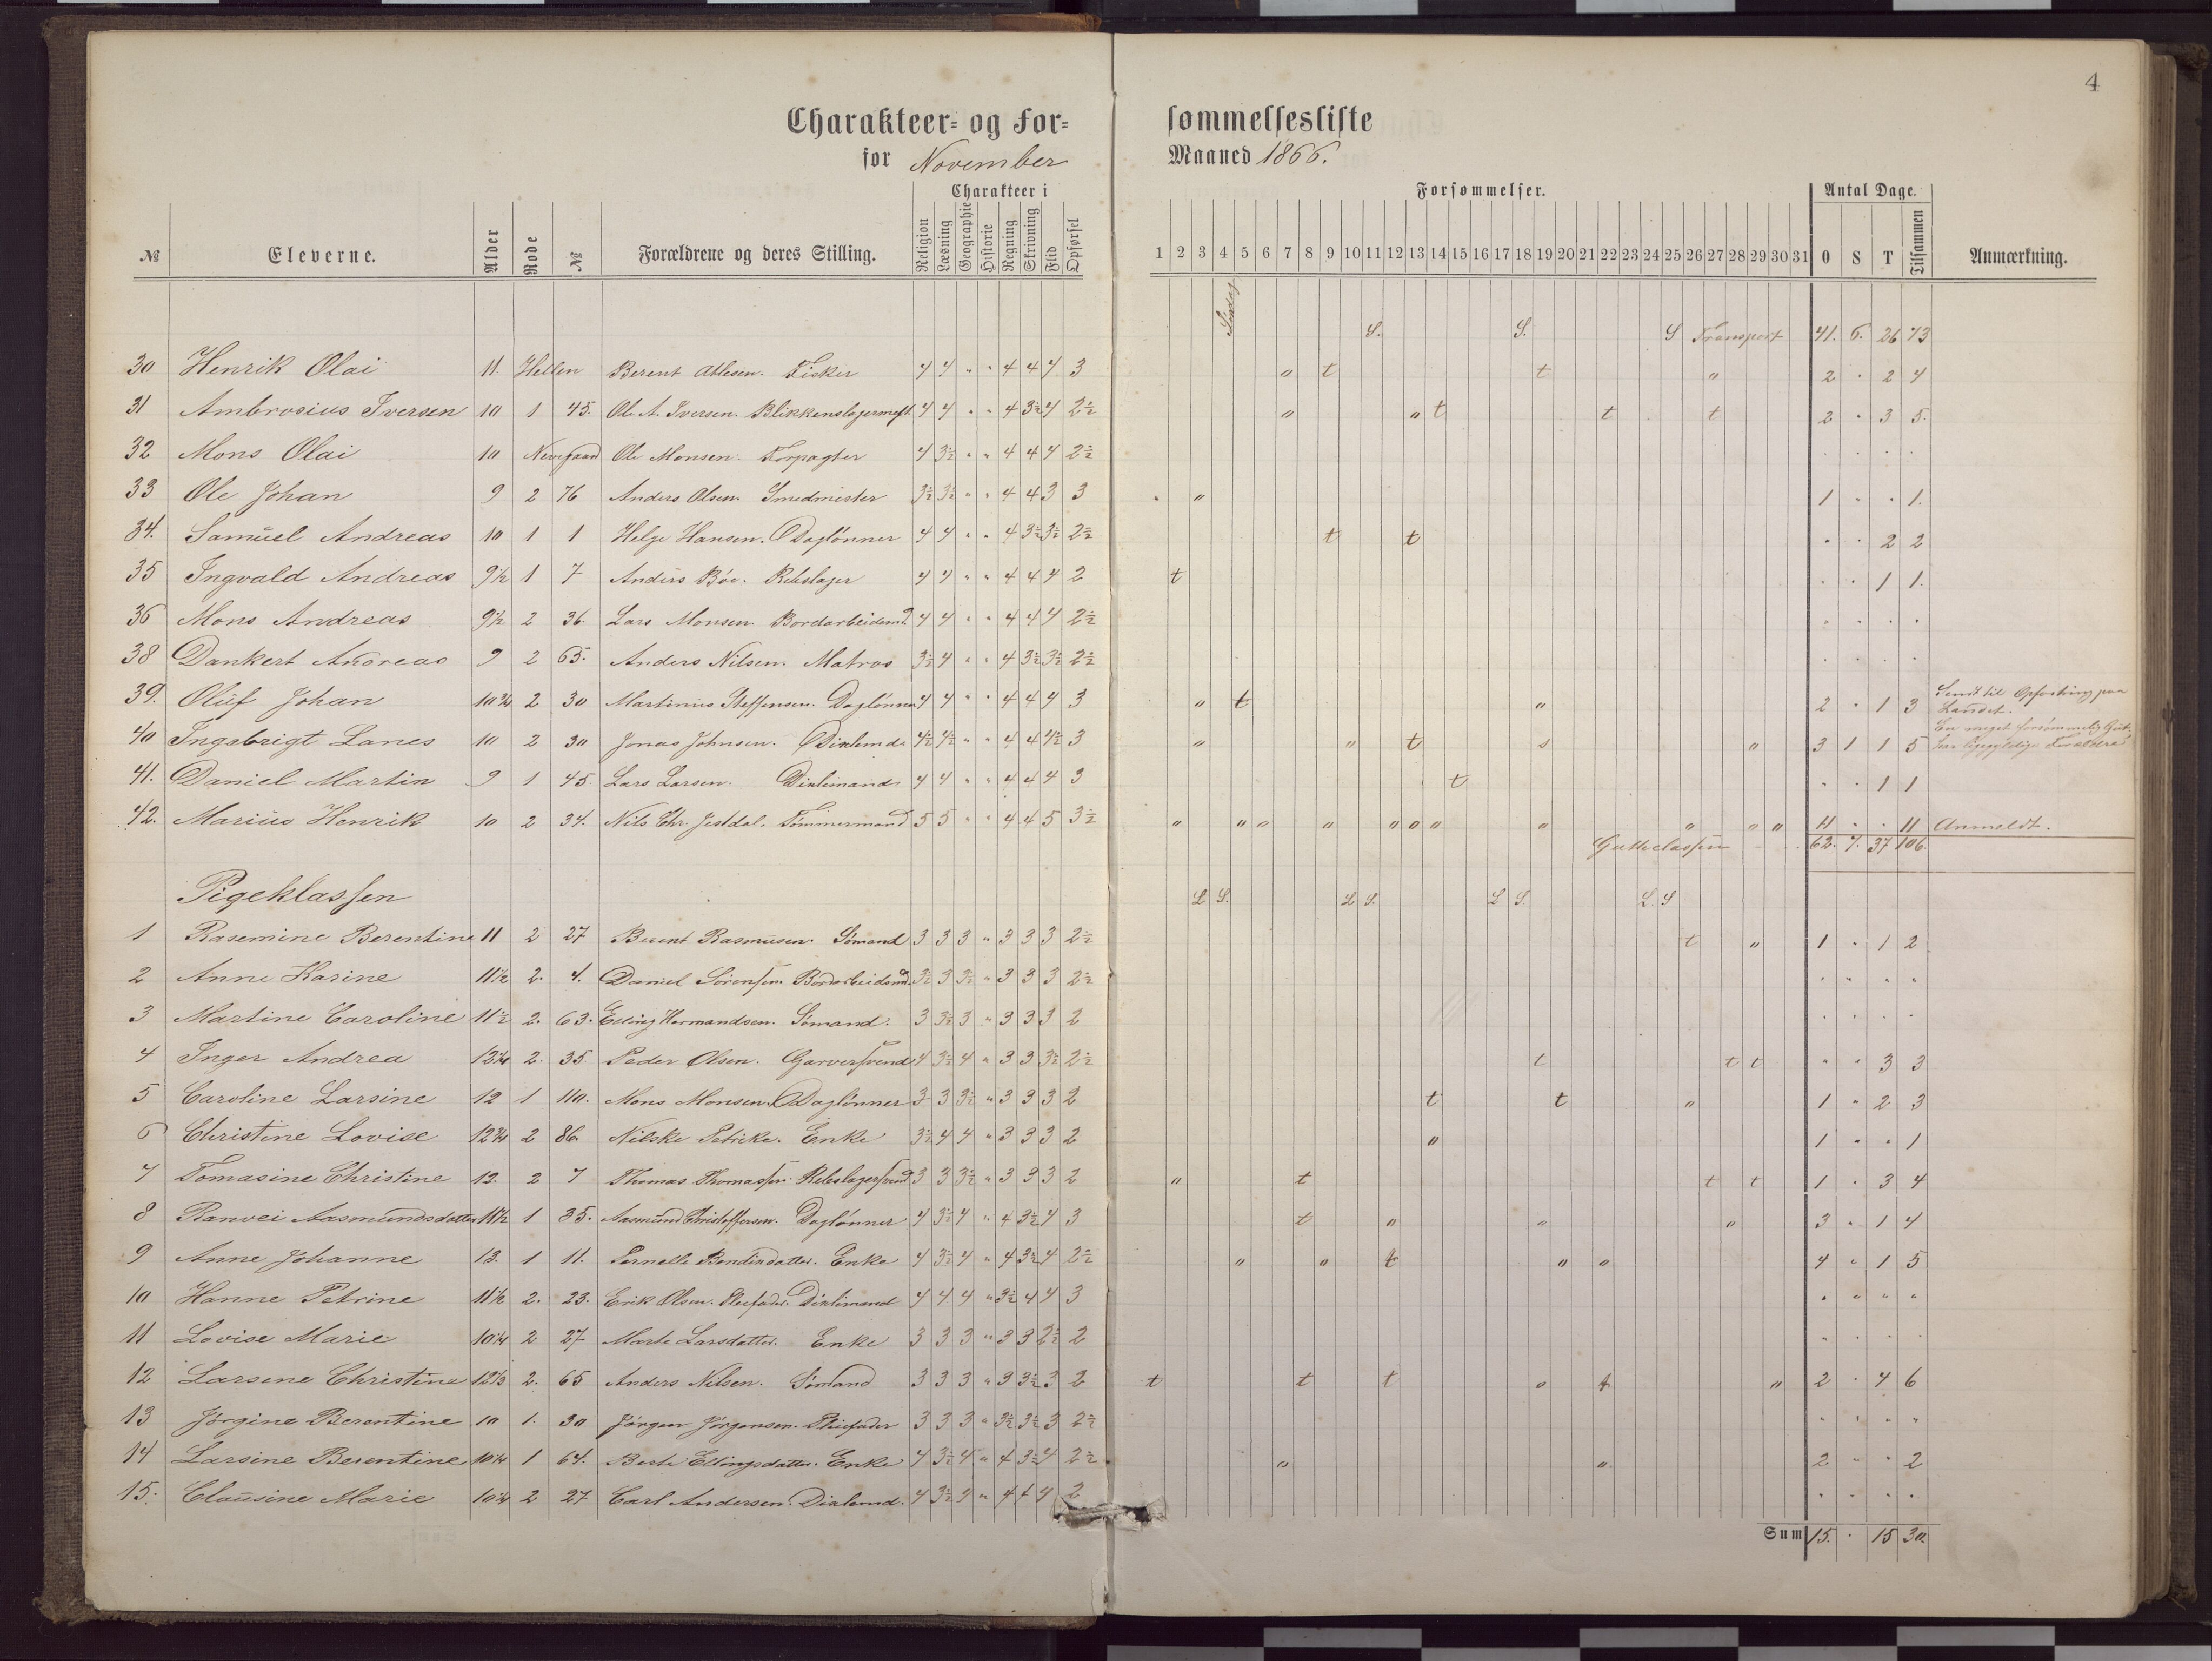 4
Charakteer= og For= sømmelsesliste
for November Maaned 1866.
Charakteer i Forsømmelser. Antal Dage.
№ Eleverne. Alder Rode № Forældrene og deres Stilling. Religion Læsning Geographie Historie Regning Skrivning Flid Opførsel 1 2 3 4 5 6 7 8 9 10 11 12 13 14 15 16 17 18 19 20 21 22 23 24 25 26 27 28 29 30 31 O S T Tilsammen Anmærkning.
Søndag S. S. S Transport 41. 6. 26 73
30 Henrik Olai 11. Hellen Berent Fisker 4 4 " " 4 4 4 3 " t t " 2 " 2 4
31 Ambrosius Iversen 10 1 45. Ole A. Iversen. Blikkenslagermest 4 4 " " 4 3½ 4 2½ " " t t t 2 " 3 5.
32 Mons Olai 10 Nevegaard Ole Monsen. Forpagter 4 3½ " " 4 4 4 2½ " " " "
33 Ole Johan 9 2 76 Anders Olsen. Smedmester 3½ 3½ " " 4 4 3 3 " 1 " " 1.
34. Samuel Andreas 10 1 1 Helge Hansen. Daglønner 4 4 " " 4 3½ 3½ 2½ t t " " 2 2
35 Ingvald Andreas 9½ 1 7 Anders Bøe. Rebslager 4 4 " " 4 4 4 2 t " " 1 1.
36 Mons Andreas 9½ 2 36. Lars Monsen. Bordarbeidsmd 4 4 " " 4 4 4 2½ " " " "
38 Dankert Andreas 9 2 65. Anders Nilsen. Matros 3½ 4 " " 4 3½ 3½ 2½ " " " "
39. Oluf Johan 10¾ 2 30 Martinus Steffensen. Daglønner 4 4 " " 4 4 4 3 " t " 2 " 1 3 Sendt til Opfostring paa Landet.
40 Ingebrigt Lanes 10 2 30 Jonas Johnsen. Dixlemd. 4½ 4½ " " 4 4 4½ 3 " " t s " 3 1 1 5 En meget forsømmelig Gut, har ligegyldige Forældre
41. Daniel Martin 9 1 45. Lars Larsen. Dixlimand 4 4 " " 4 4 4 3 t " " 1 1
42. Marius Henrik 10 2 34. Nils Chr. Jestdal. Tømmermand 5 5 " " 4 4 5 3½ " " " " " " " " " " " 11 " " 11 Anmeldt.
Gutteclassen 62. 7. 37 106.
Pigeklassen L S. L S. L S. L. S
1 Rasemine Berentine 11 2 27 Berent Rasmusen. Sømand 3 3 3 " 3 3 3 2½ t " 1 " 1 2
2 Anne Karine 11½ 2. 4. Daniel Sørensen. Bordarbeidsmd. 3½ 3 3½ " 3 3 3 2½ " " " "
3 Martine Caroline 11½ 2. 63. Elling Hermandsen. Sømand. 3 3½ 3 " 3 3 3 2 " " " "
4 Inger Andrea 12¼ 2. 35. Peder Olsen. Garversvend 4 3½ 4 " 3 3 3½ 2½ t t t " " 3 3
5 Caroline Larsine 12 1 110. Mons Monsen. Daglønner 3 3 3½ " 3 3 3 2 t t " 1 " 2 3
6 Christine Lovise 12¾ 2 86. Nilske Petrike. Enke 3½ 4 4 " 3 3 3 2 " 1 " " 1
7 Tomasine Christine 13. 2 7 Thomas Thomassen. Rebslagersvend 3 3 3½ " 3 3 3 2 " t t t 1 " 3 4
8 Ranvei Aasmundsdatter 11½ 1 35. Aasmund Christoffersen. Daglønner 4 3½ 4 " 4 3½ 4 3 t " " " 3 " 1 4
9 Anne Johanne 13. 1 11. Pernelle Bendixdatter. Enke 4 3½ 4 " 4 3½ 4 2½ " " t " " 4 " 1 5
10 Hanne Petrine 11½ 2. 23. Erik Olsen. Pleiefader. Dixlimand 4 4 4 " 3½ 4 4 3 " " " "
11 Lovise Marie 10¼ 2 27 Marte Larsdatter. Enke 3 3 3 " 3 3 2½ 2 " " " "
12 Larsene Christine 12⅓ 2. 65 Anders Nilsen. Sømand 3 3 3 " 3 3½ 3 2 t t t " t " 2 " 4 6
13 Jørgine Berentine 10 1. 30 Jørgen Jørgensen. Pleiefader 3 3 3 " 3½ 3½ 3 2½ " " " "
14 Larsine Berentine 10¼ 1 64. Berte Ellingsdatter. Enke 4 3½ 4 " 4 3½ 4 2½ " " 2 " " 2
15. Clausine Marie 10¼ 2 27 Carl Andersen. Dixlemd. 4 3½ 4 " 4 4 4 2 " " " "
Sum 15. " 15 30